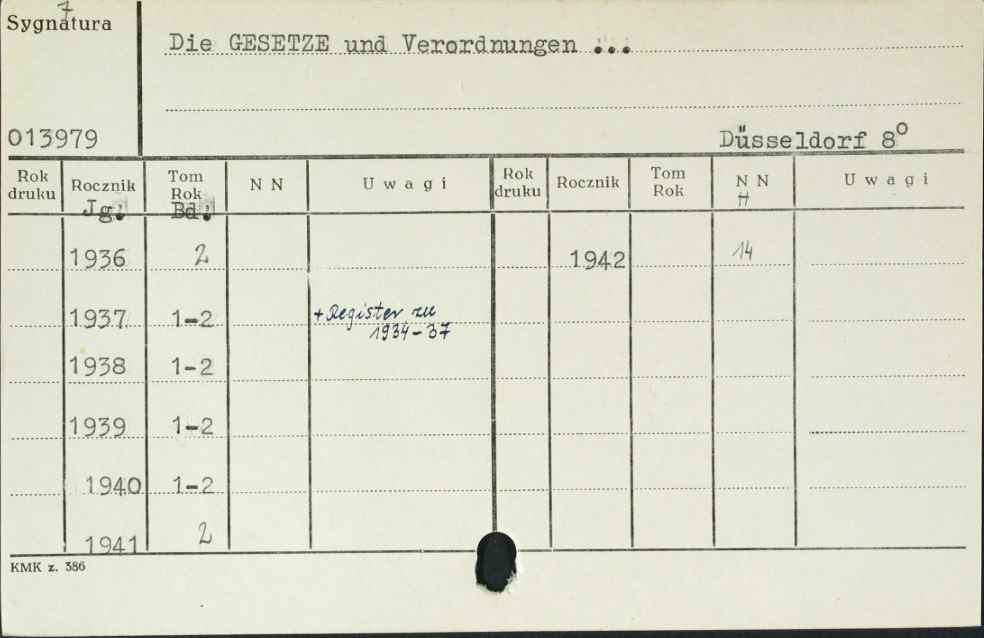 7
Sygnatura
Die GESETZE und Verordnungen ...
013979
Düsseldorf 8°
Rok druku Rocznik Tom Rok NN Uwagi Rok druku Rocznik Tom Rok NN Uwagi
Jg. Bd. H
1936 2 1942 14
1937 1-2 + Register zu
1934-37
1938 1-2
1939 1-2
1940 1-2
1941 2
KMK z. 386